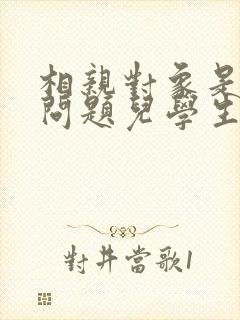 相親對象是
問題兒學生
對井當歌1